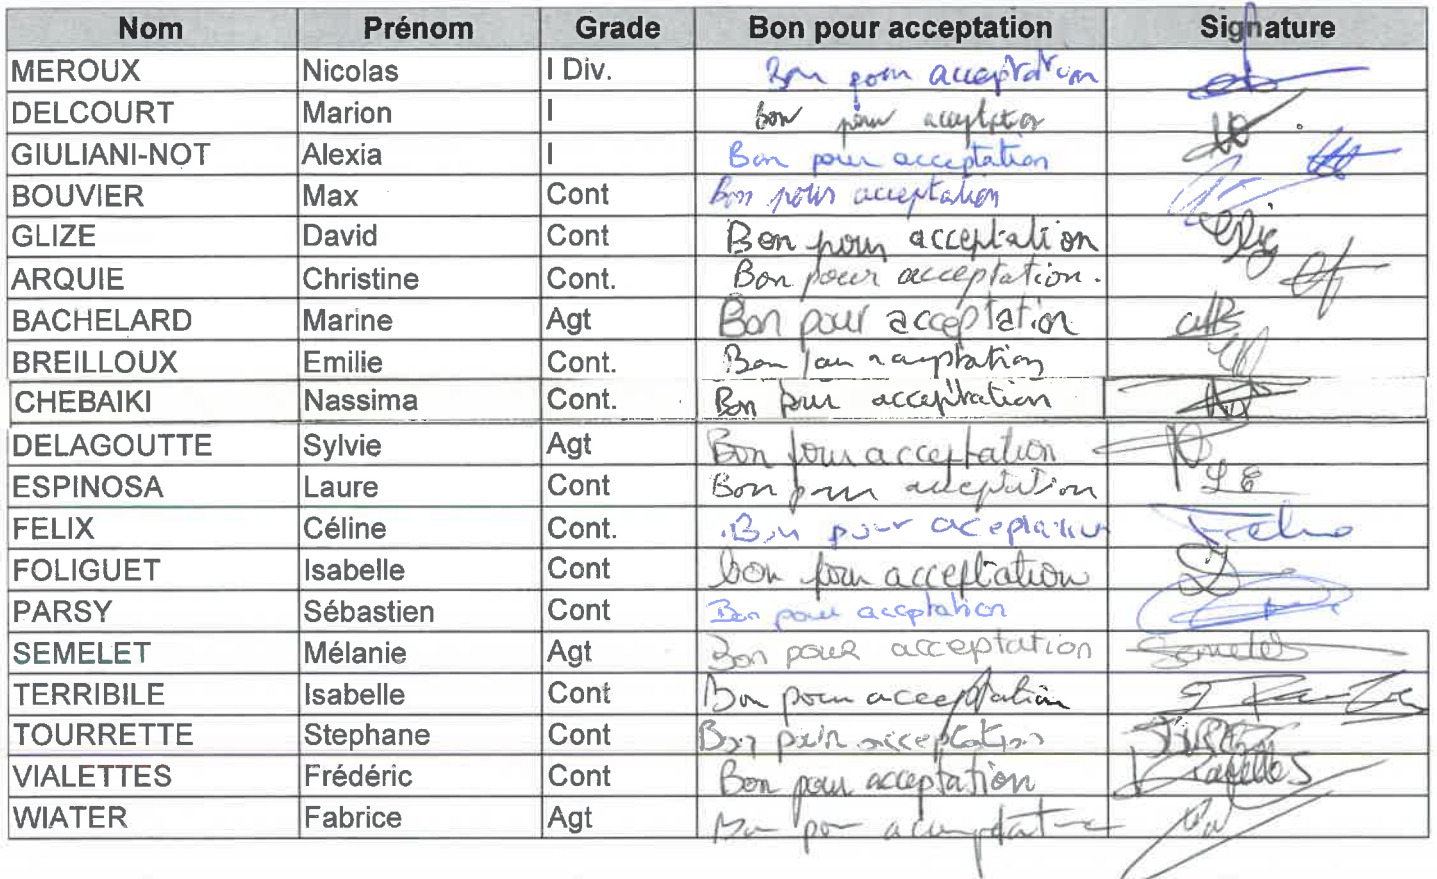 Nom Prénom Grade Bon pour acceptation Signature
MEROUX Nicolas I Div. Bon pour acceptation
DELCOURT Marion I bon pour acceptation
GIULIANI-NOT Alexia I Bon pour acceptation
BOUVIER Max Cont Bon pour acceptation
GLIZE David Cont Bon pour acceptation
ARQUIE Christine Cont. Bon pour acceptation.
BACHELARD Marine Agt Bon pour acceptation
BREILLOUX Emilie Cont. Bon pour acceptation
CHEBAIKI Nassima Cont. Bon pour acceptation
DELAGOUTTE Sylvie Agt Bon pour acceptation
ESPINOSA Laure Cont Bon pour acceptation LE
FELIX Céline Cont. Bon pour acceptation
FOLIGUET Isabelle Cont bon pour acceptation
PARSY Sébastien Cont Bon pour acceptation
SEMELET Mélanie Agt Bon pour acceptation Semelet
TERRIBILE Isabelle Cont Bon pour acceptation
TOURRETTE Stephane Cont Bon pour acceptation
VIALETTES Frédéric Cont Bon pour acceptation
WIATER Fabrice Agt Bon pour acceptation